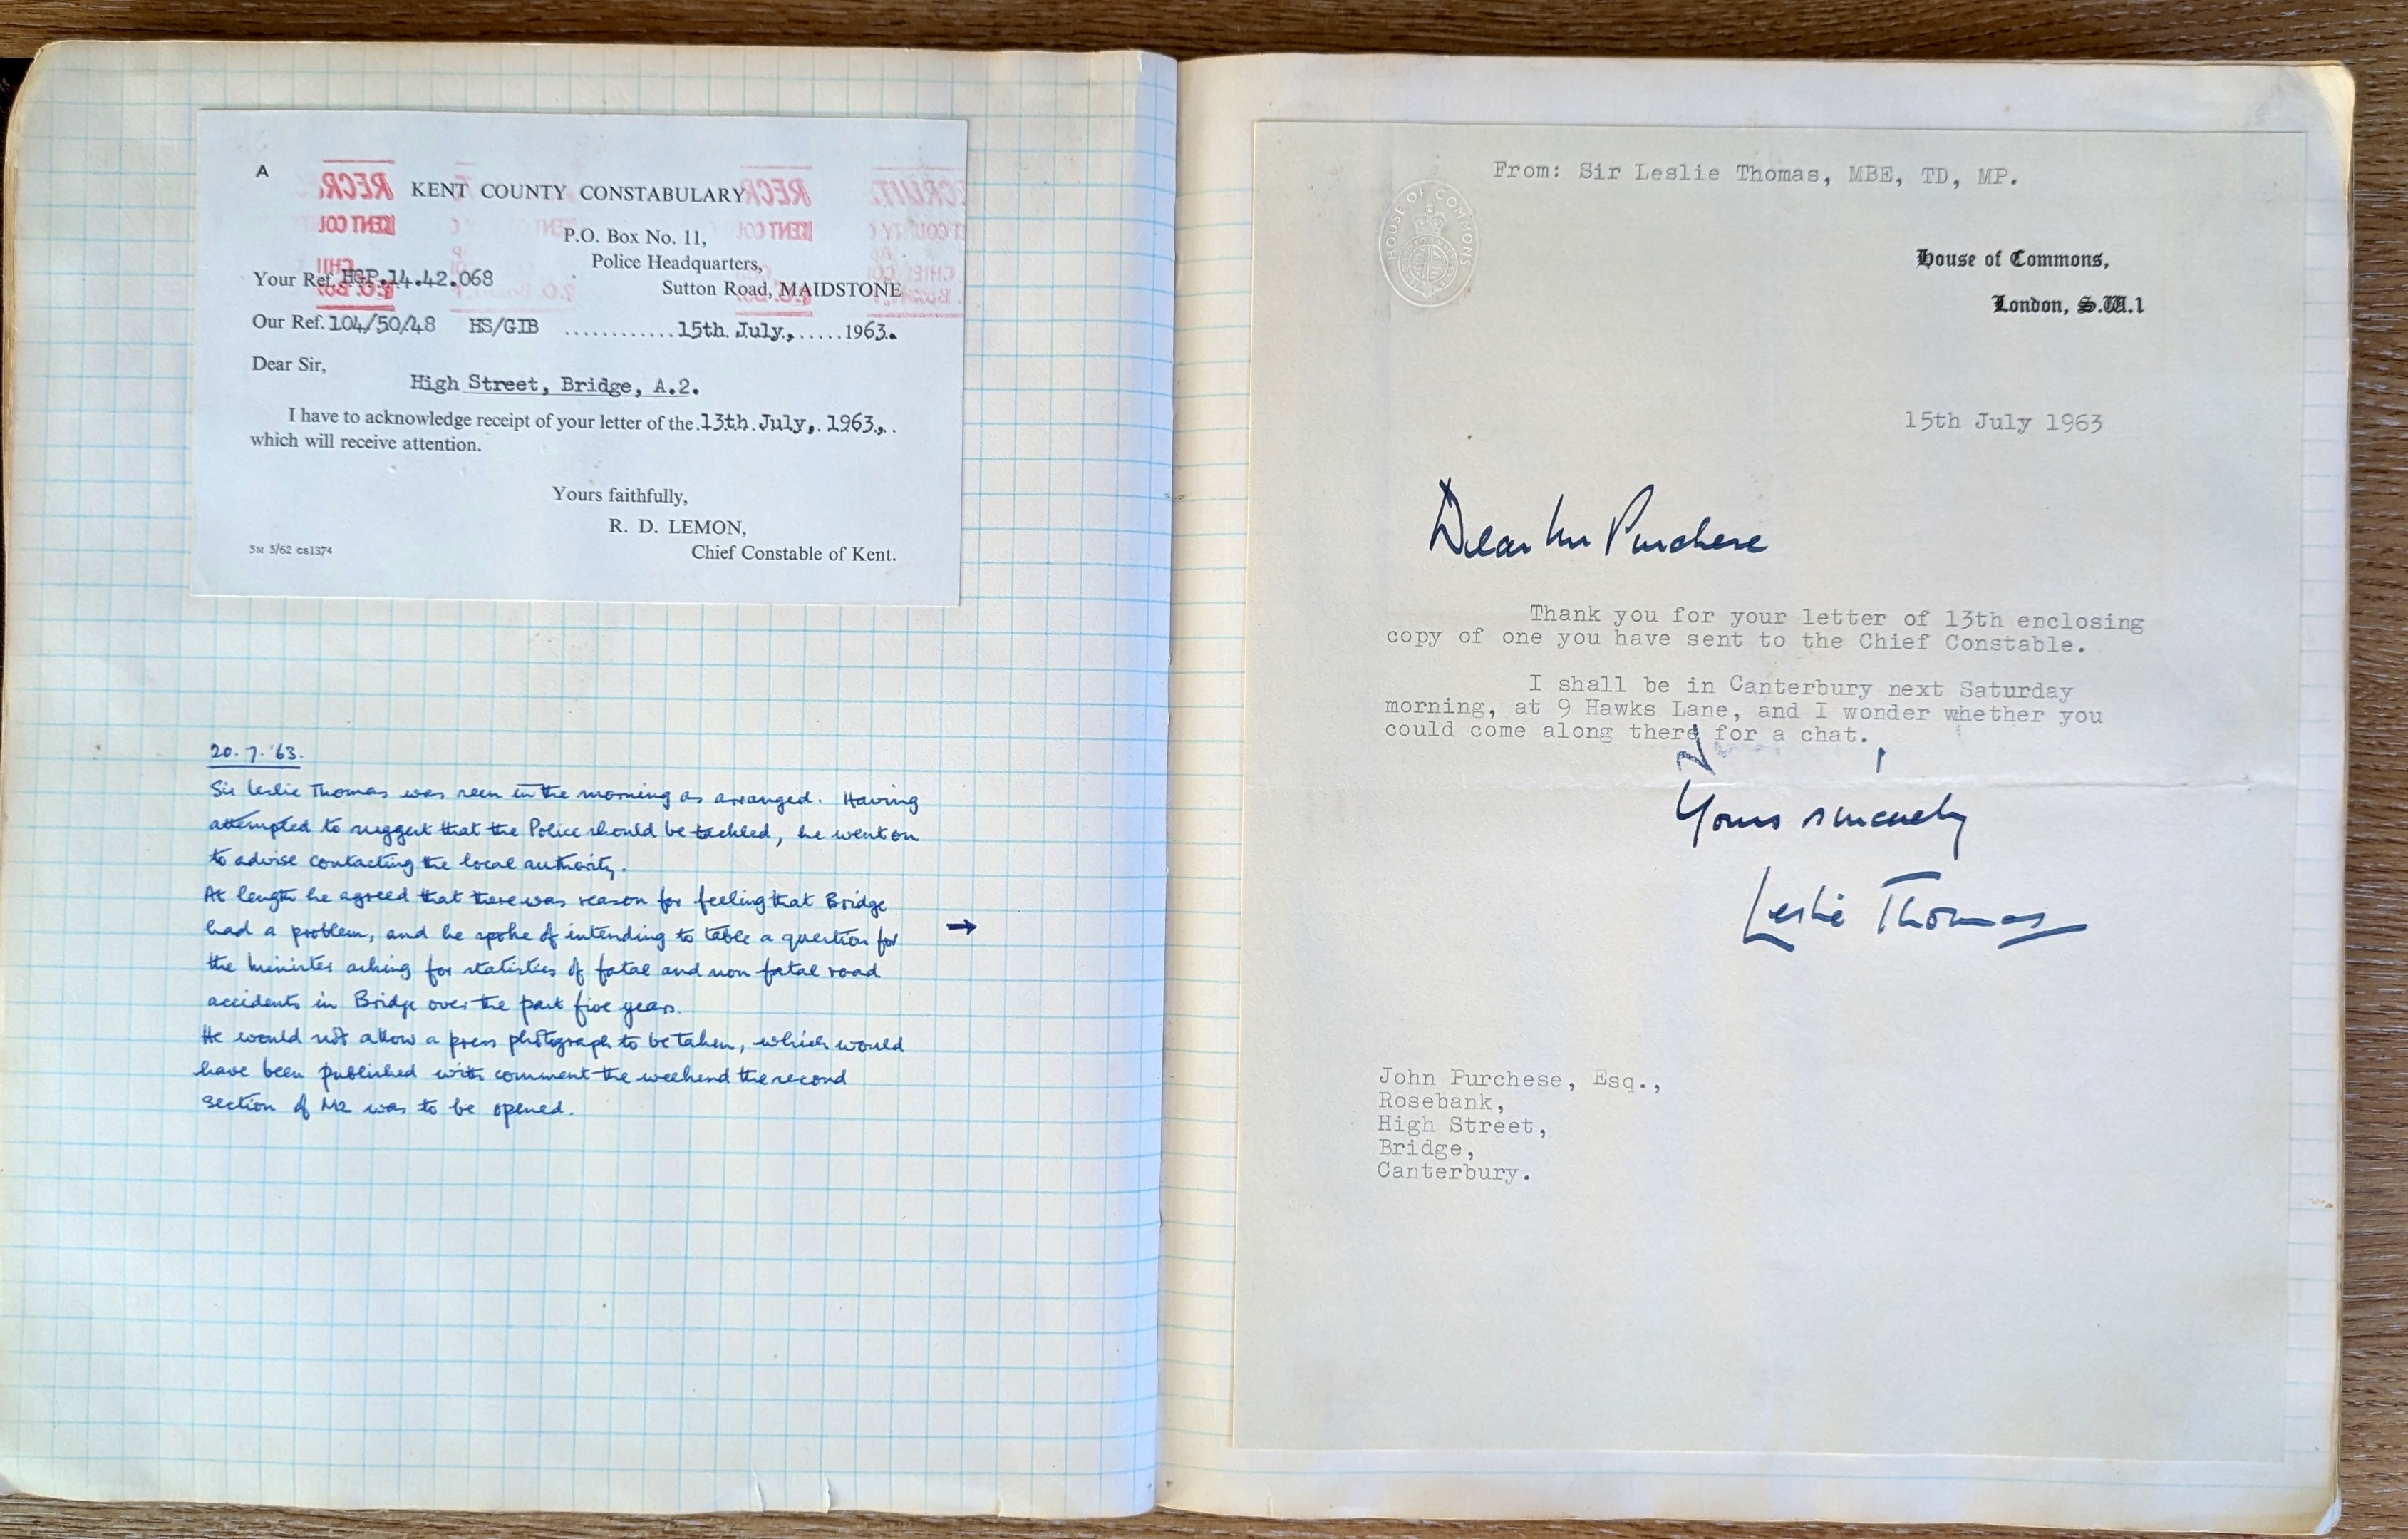 A
KENT COUNTY CONSTABULARY
P.O. Box No. 11,
Police Headquarters,
Sutton Road, MAIDSTONE
Your Ref. HGP.14.42.068
Our Ref. 104/50/48 HS/GIB ............15th July,.....1963.
Dear Sir,
High Street, Bridge, A.2.
I have to acknowledge receipt of your letter of the.13th.July,.1963.,.
which will receive attention.
Yours faithfully,
R. D. LEMON,
Chief Constable of Kent.
5M 5/62 cs1374
20.7.'63.
Sir Leslie Thomas was seen in the morning as arranged. Having
attempted to suggest that the Police should be tackled, he went on
to advise contacting the local authority.
At length he agreed that there was reason for feeling that Bridge
had a problem, and he spoke of intending to table a question for →
the minister asking for statistics of fatal and non fatal road
accidents in Bridge over the past five years.
He would not allow a press photograph to be taken, which would
have been published with comment the weekend the second
section of M2 was to be opened.
From: Sir Leslie Thomas, MBE, TD, MP.
HOUSE OF COMMONS
House of Commons,
London, S.W.1
15th July 1963
Dear Mr Purchese
Thank you for your letter of 13th enclosing
copy of one you have sent to the Chief Constable.
I shall be in Canterbury next Saturday
morning, at 9 Hawks Lane, and I wonder whether you
could come along there for a chat.
Yours sincerely
Leslie Thomas
John Purchese, Esq.,
Rosebank,
High Street,
Bridge,
Canterbury.